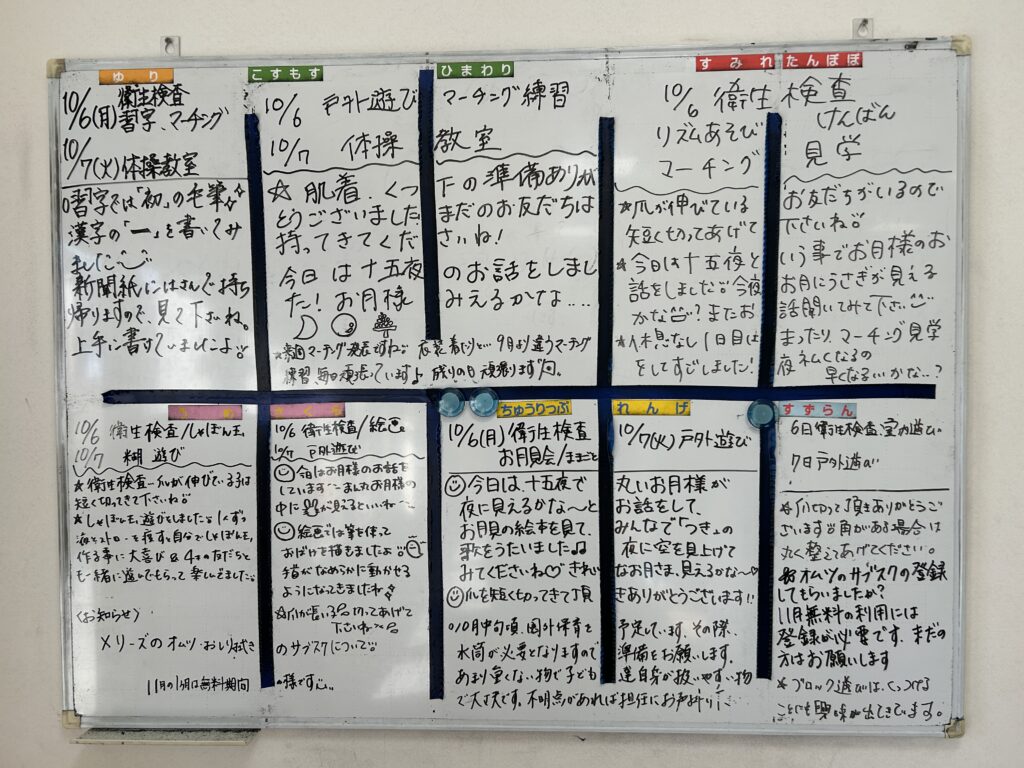 ゆり
10/6(月) 衛生検査
習字、マーチング
10/7(火) 体操教室
習字では「初」の毛筆
漢字の「一」を書いてみ
ました
新聞紙にはさんで持ち
帰りますので、見て下さいね。
上手に書けていましたよ
こすもす ひまわり
10/6 戸外遊び マーチング練習
10/7 体操 教室
☆ 肌着、くつ下の準備ありが
とうございました まだのお友だちは
持ってきてくださいね!
今日は十五夜のお話をしまし
た! お月様みえるかな....
マーチング発表ですね 衣装着たりと… 9月より違うマーチング
練習 毎日頑張っています♪ 残りの日頑張ります
すみれ たんぽぽ
10/6 衛生検査
リズムあそび けんばん
マーチング 見学
★爪が伸びているお友だちがいるので
短く切ってあげて下さいね
★今日は十五夜という事でお月様のお
話をしました 今夜お月にうさぎが見える
かな? またお話聞いてみて下さい
★休息なし1日目はまったり、マーチング見学
をしてすごしました! 夜ネムくなるの
早くなるいいかな…?
うめ
10/6 衛生検査/しゃぼん玉
10/7 糊遊び
★衛生検査…爪が伸びている子は
短く切ってきて下さいね
★しゃぼん玉遊びをしました!
作る事に大喜び
も一緒に遊んでもらって楽しんでました
〈お知らせ〉
メリーズのオムツ・おしり拭きのサブスクについて
11月の1ヶ月は無料期間
さくら
10/6 衛生検査/絵画
10/7 戸外遊び
今日はお月様のお話を
しています まん丸お月様の
中に
絵画では筆を使って
おばけを描きましたよ
手首がなめらかに動かせる
ようになってきましたね
爪が長い子切ってあげて
下さいね
ちゅうりっぷ れんげ
10/6(月) 衛生検査 10/7(火) 戸外遊び
お月見会/ままごと
今日は、十五夜で丸いお月様が
夜に見えるかな～とお話をして、
お月見の絵本を見て、みんなで「つき」の
歌をうたいました♫ 夜に空を見上げて
みてくださいね♡ きれいなお月さま、見えるかな～♡
爪を短く切ってきて頂きありがとうございます!!
○10月中旬頃、園外保育を予定しています。その際、
水筒が必要となりますので準備をお願いします。
あまり重くない物で子ども達自身が扱いやすい物
で大丈夫です。不明点があれば担任にお声掛け
すずらん
6日 衛生検査、室内遊び
7日 戸外遊び
★爪切って頂きありがとうご
ざいます 角がある場合は
丸く整えてあげてください。
★オムツのサブスクの登録
してもらいましたか?
11月無料の利用には
登録が必要です。まだの
方はお願いします
★ブロック遊びは、くっつける
ことにも興味が出てきています。